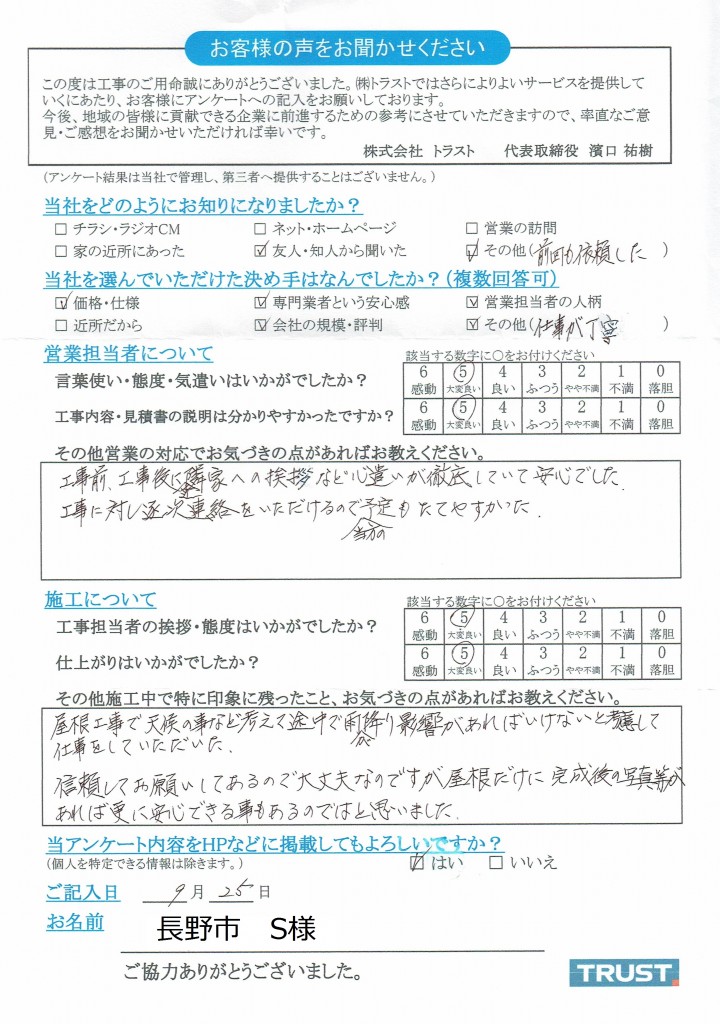 お客様の声をお聞かせください
この度は工事のご用命誠にありがとうございました。㈱トラストではさらによりよいサービスを提供して
いくにあたり、お客様にアンケートへの記入をお願いしております。
今後、地域の皆様に貢献できる企業に前進するための参考にさせていただきますので、率直なご意
見・ご感想をお聞かせいただければ幸いです。
株式会社 トラスト 代表取締役 濱口 祐樹
(アンケート結果は当社で管理し、第三者へ提供することはございません。)
当社をどのようにお知りになりましたか?
□ チラシ・ラジオCM □ ネット・ホームページ □ 営業の訪問
□ 家の近所にあった ☑ 友人・知人から聞いた ☑ その他(前回も依頼した )
当社を選んでいただけた決め手はなんでしたか?(複数回答可)
☑ 価格・仕様 ☑ 専門業者という安心感 ☑ 営業担当者の人柄
□ 近所だから ☑ 会社の規模・評判 ☑ その他(仕事が丁寧 )
営業担当者について 該当する数字に○をお付けください
言葉使い・態度・気遣いはいかがでしたか? 6 ⑤ 4 3 2 1 0
感動 大変良い 良い ふつう やや不満 不満 落胆
工事内容・見積書の説明は分かりやすかったですか? 6 ⑤ 4 3 2 1 0
感動 大変良い 良い ふつう やや不満 不満 落胆
その他営業の対応でお気づきの点があればお教えください。
工事前、工事後に隣家への挨拶など心遣いが徹底していて安心でした
工事に対し逐次連絡をいただけるので予定もたてやすかった.
当方の
施工について 該当する数字に○をお付けください
工事担当者の挨拶・態度はいかがでしたか? 6 ⑤ 4 3 2 1 0
感動 大変良い 良い ふつう やや不満 不満 落胆
仕上がりはいかがでしたか? 6 ⑤ 4 3 2 1 0
感動 大変良い 良い ふつう やや不満 不満 落胆
その他施工中で特に印象に残ったこと、お気づきの点があればお教えください。
屋根工事で天候の事など考えて途中で雨降り影響があればいけないと考慮して
仕事をしていただいた.
信頼してお願いしてあるので大丈夫なのですが屋根だけに完成後の写真等が
あれば更に安心できる事もあるのではと思いました.
当アンケート内容をHPなどに掲載してもよろしいですか?
(個人を特定できる情報は除きます。) ☑ はい □ いいえ
ご記入日 9 月 25 日
お名前 長野市 S様
ご協力ありがとうございました。
TRUST.